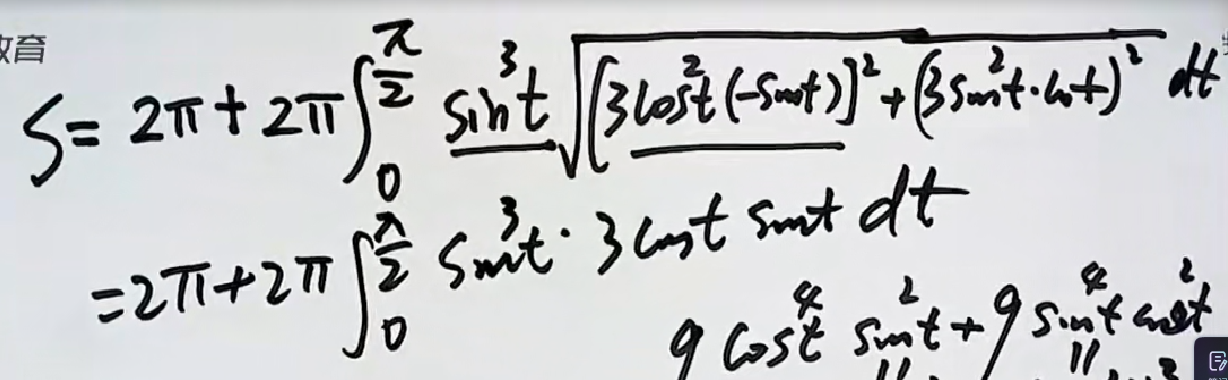 教育
S = 2π + 2π∫₀^{π/2} sin³t √([3cos²t(-sint)]² + (3sin²t·cost)²) dt
= 2π + 2π∫₀^{π/2} sin³t · 3cost sint dt
9cos⁴t sin²t + 9sin⁴t cos²t